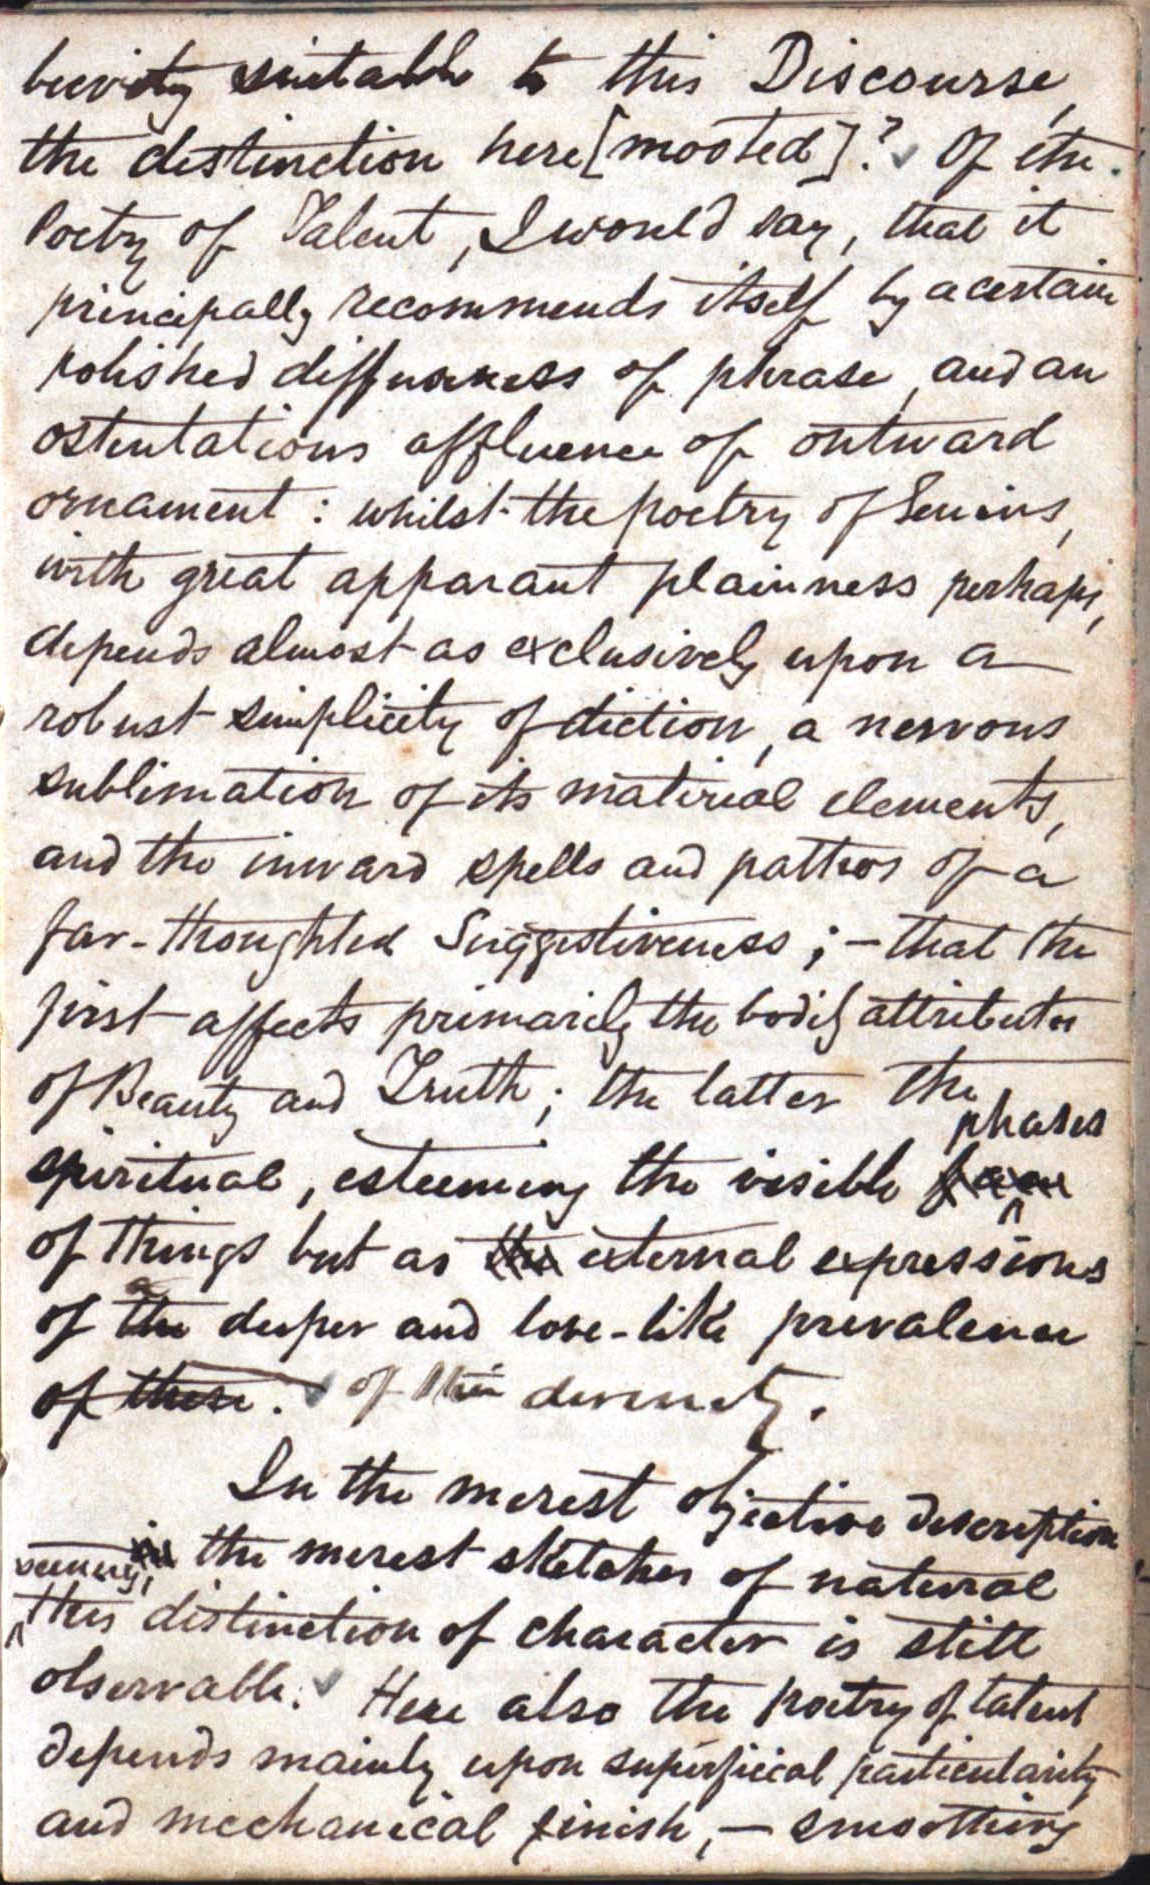 brevity suitable to this Discourse,
the distinction here [mooted]? Of the
Poetry of Talent, I would say, that it
principally recommends itself by a certain
polished diffuseness of phrase, and an
ostentatious affluence of outward
ornament: whilst the poetry of Genius,
with great apparant plainness perhaps,
depends almost as exclusively upon a
robust simplicity of diction, a nervous
sublimation of its material elements,
and the inward spells and pathos of a
far-thoughted Suggestiveness; – that the
first affects primarily the bodily attributes
of Beauty and Truth; the latter the
phases
spiritual, esteeming the visible
of things but as the external expressions
of the a deeper and love-like prevalence
of these. of their divinity.
In the merest objective description
scenery, in the merest sketches of natural
this distinction of character is still
observable. Here also the poetry of talent
depends mainly upon superficial particularity
and mechanical finish, – smoothing